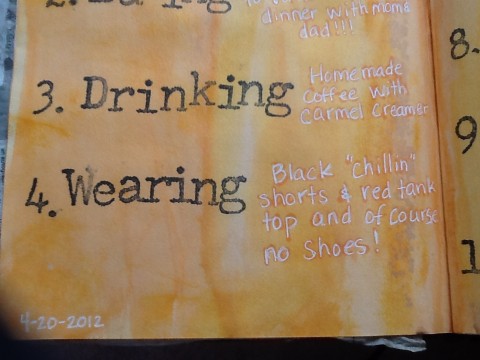 2.
dinner with mom &
dad!!!
3. Drinking
Homemade
coffee with
Carmel Creamer
4. Wearing
Black "Chillin"
shorts & red tank
top and of course
no shoes!
4-20-2012
8.
9
1